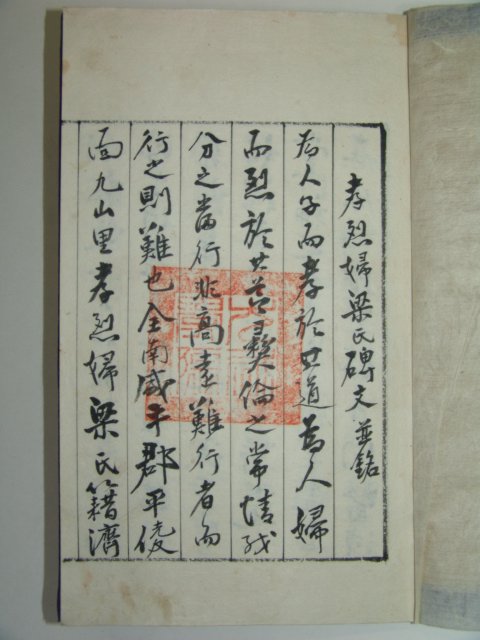 孝烈婦梁氏碑文 並銘
為人子而孝於世道為人婦
而烈於其苦彝倫之常情職
分之當行非高遠難行者而
行之則難也全南咸平郡平陵
面九山里孝烈婦梁氏籍濟